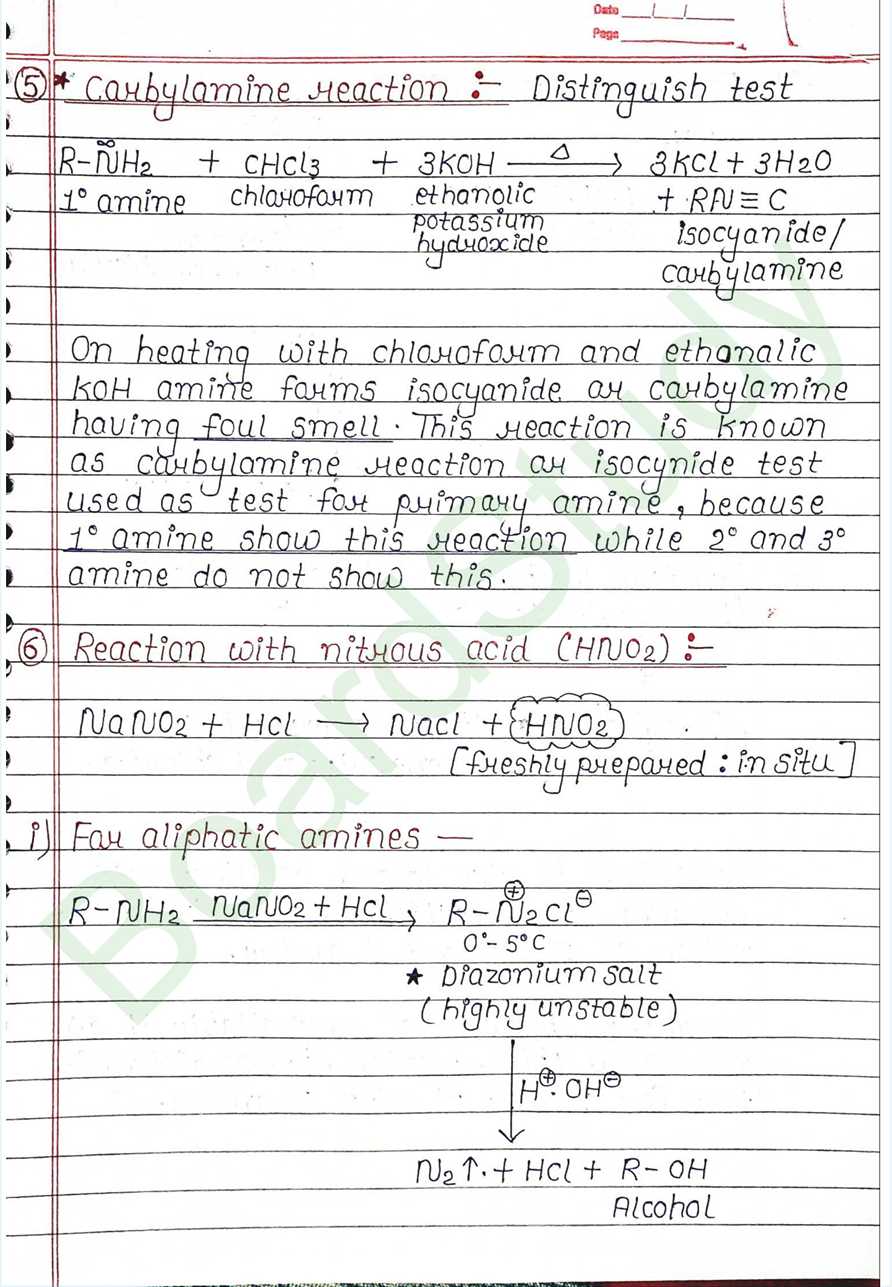 Date ___/___/___
Page ___
⑤ * Carbylamine reaction :- Distinguish test
R-N̈H2 + CHCl3 + 3KOH —Δ→ 3KCl + 3H2O
1° amine chloroform ethanolic + RN≡C
potassium isocyanide/
hydroxide carbylamine
On heating with chloroform and ethanalic
KOH amine forms isocyanide or carbylamine
having foul smell. This reaction is known
as carbylamine reaction or isocynide test
used as test for primary amine, because
1° amine show this reaction while 2° and 3°
amine do not show this.
⑥ Reaction with nitrous acid (HNO2) :-
NaNO2 + HCl → Nacl + HNO2
[freshly prepared : in situ]
i) For aliphatic amines —
R-NH2 —NaNO2 + HCl→ R-N⊕2Cl⊖
0°- 5°C
★ Diazonium salt
(highly unstable)
H⊕. OH⊖
N2↑. + HCl + R-OH
Alcohol
BoardStudy